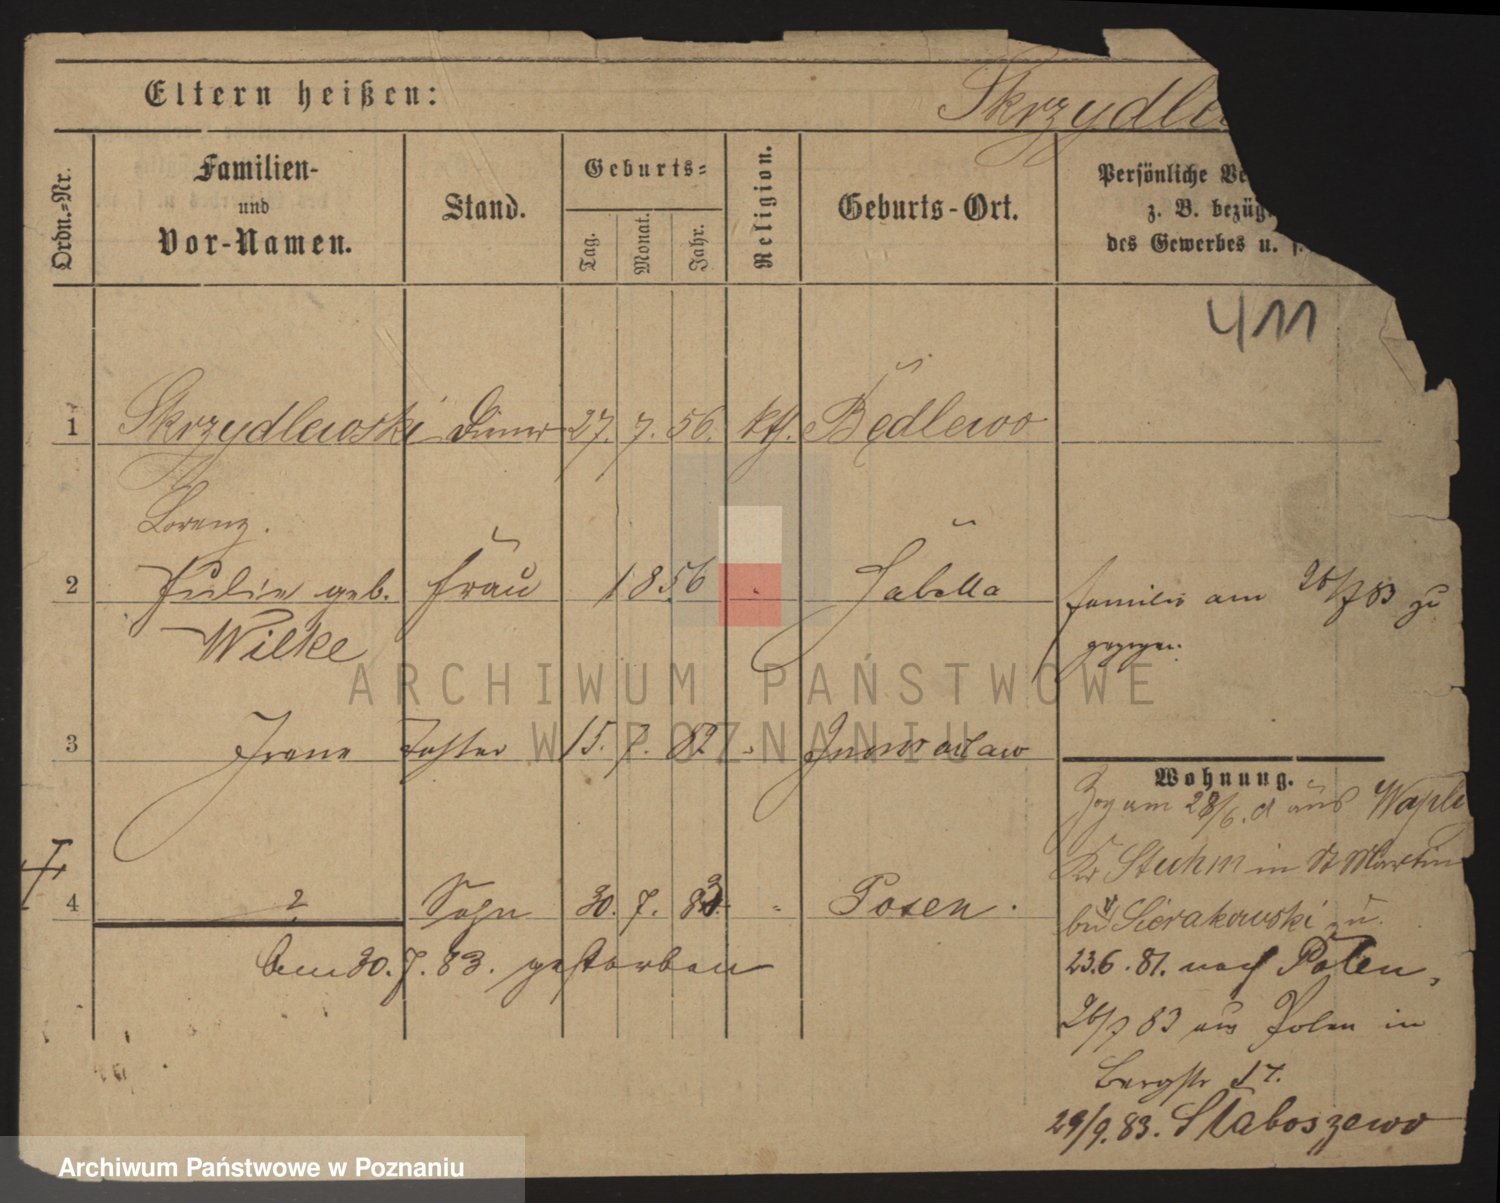 Eltern heißen:
Skrzydle
Ordn.-Nr.
Familien-
und
Vor-Namen.
Stand.
Geburts-
Tag.
Monat.
Jahr.
Religion.
Geburts-Ort.
Persönliche Ve
z. B. bezüg
des Gewerbes u. f.
411
1 Skrzydlewski Diener 27. 7. 56. kth. Będlewo
Lorenz.
2 Julie geb. Frau 1856 " Jabella
Wilke
Familie am 26/7 83 zu
gezogen.
3 Irene Tochter 15. 7. 82 " Inowraclaw
Wohnung.
Zog am 28/6. d aus Wapli
Kr Stuhm in St Martin
bei Sierakowski zu.
4 2 Sohn 30. 7. 83. " Posen.
23.6.81. nach Polen,
Am 30. 7. 83. gestorben
26/7 83 aus Polen in
Bergstr 17.
29/9. 83. Slaboszewo
ARCHIWUM PAŃSTWOWE
W POZNANIU
Archiwum Państwowe w Poznaniu